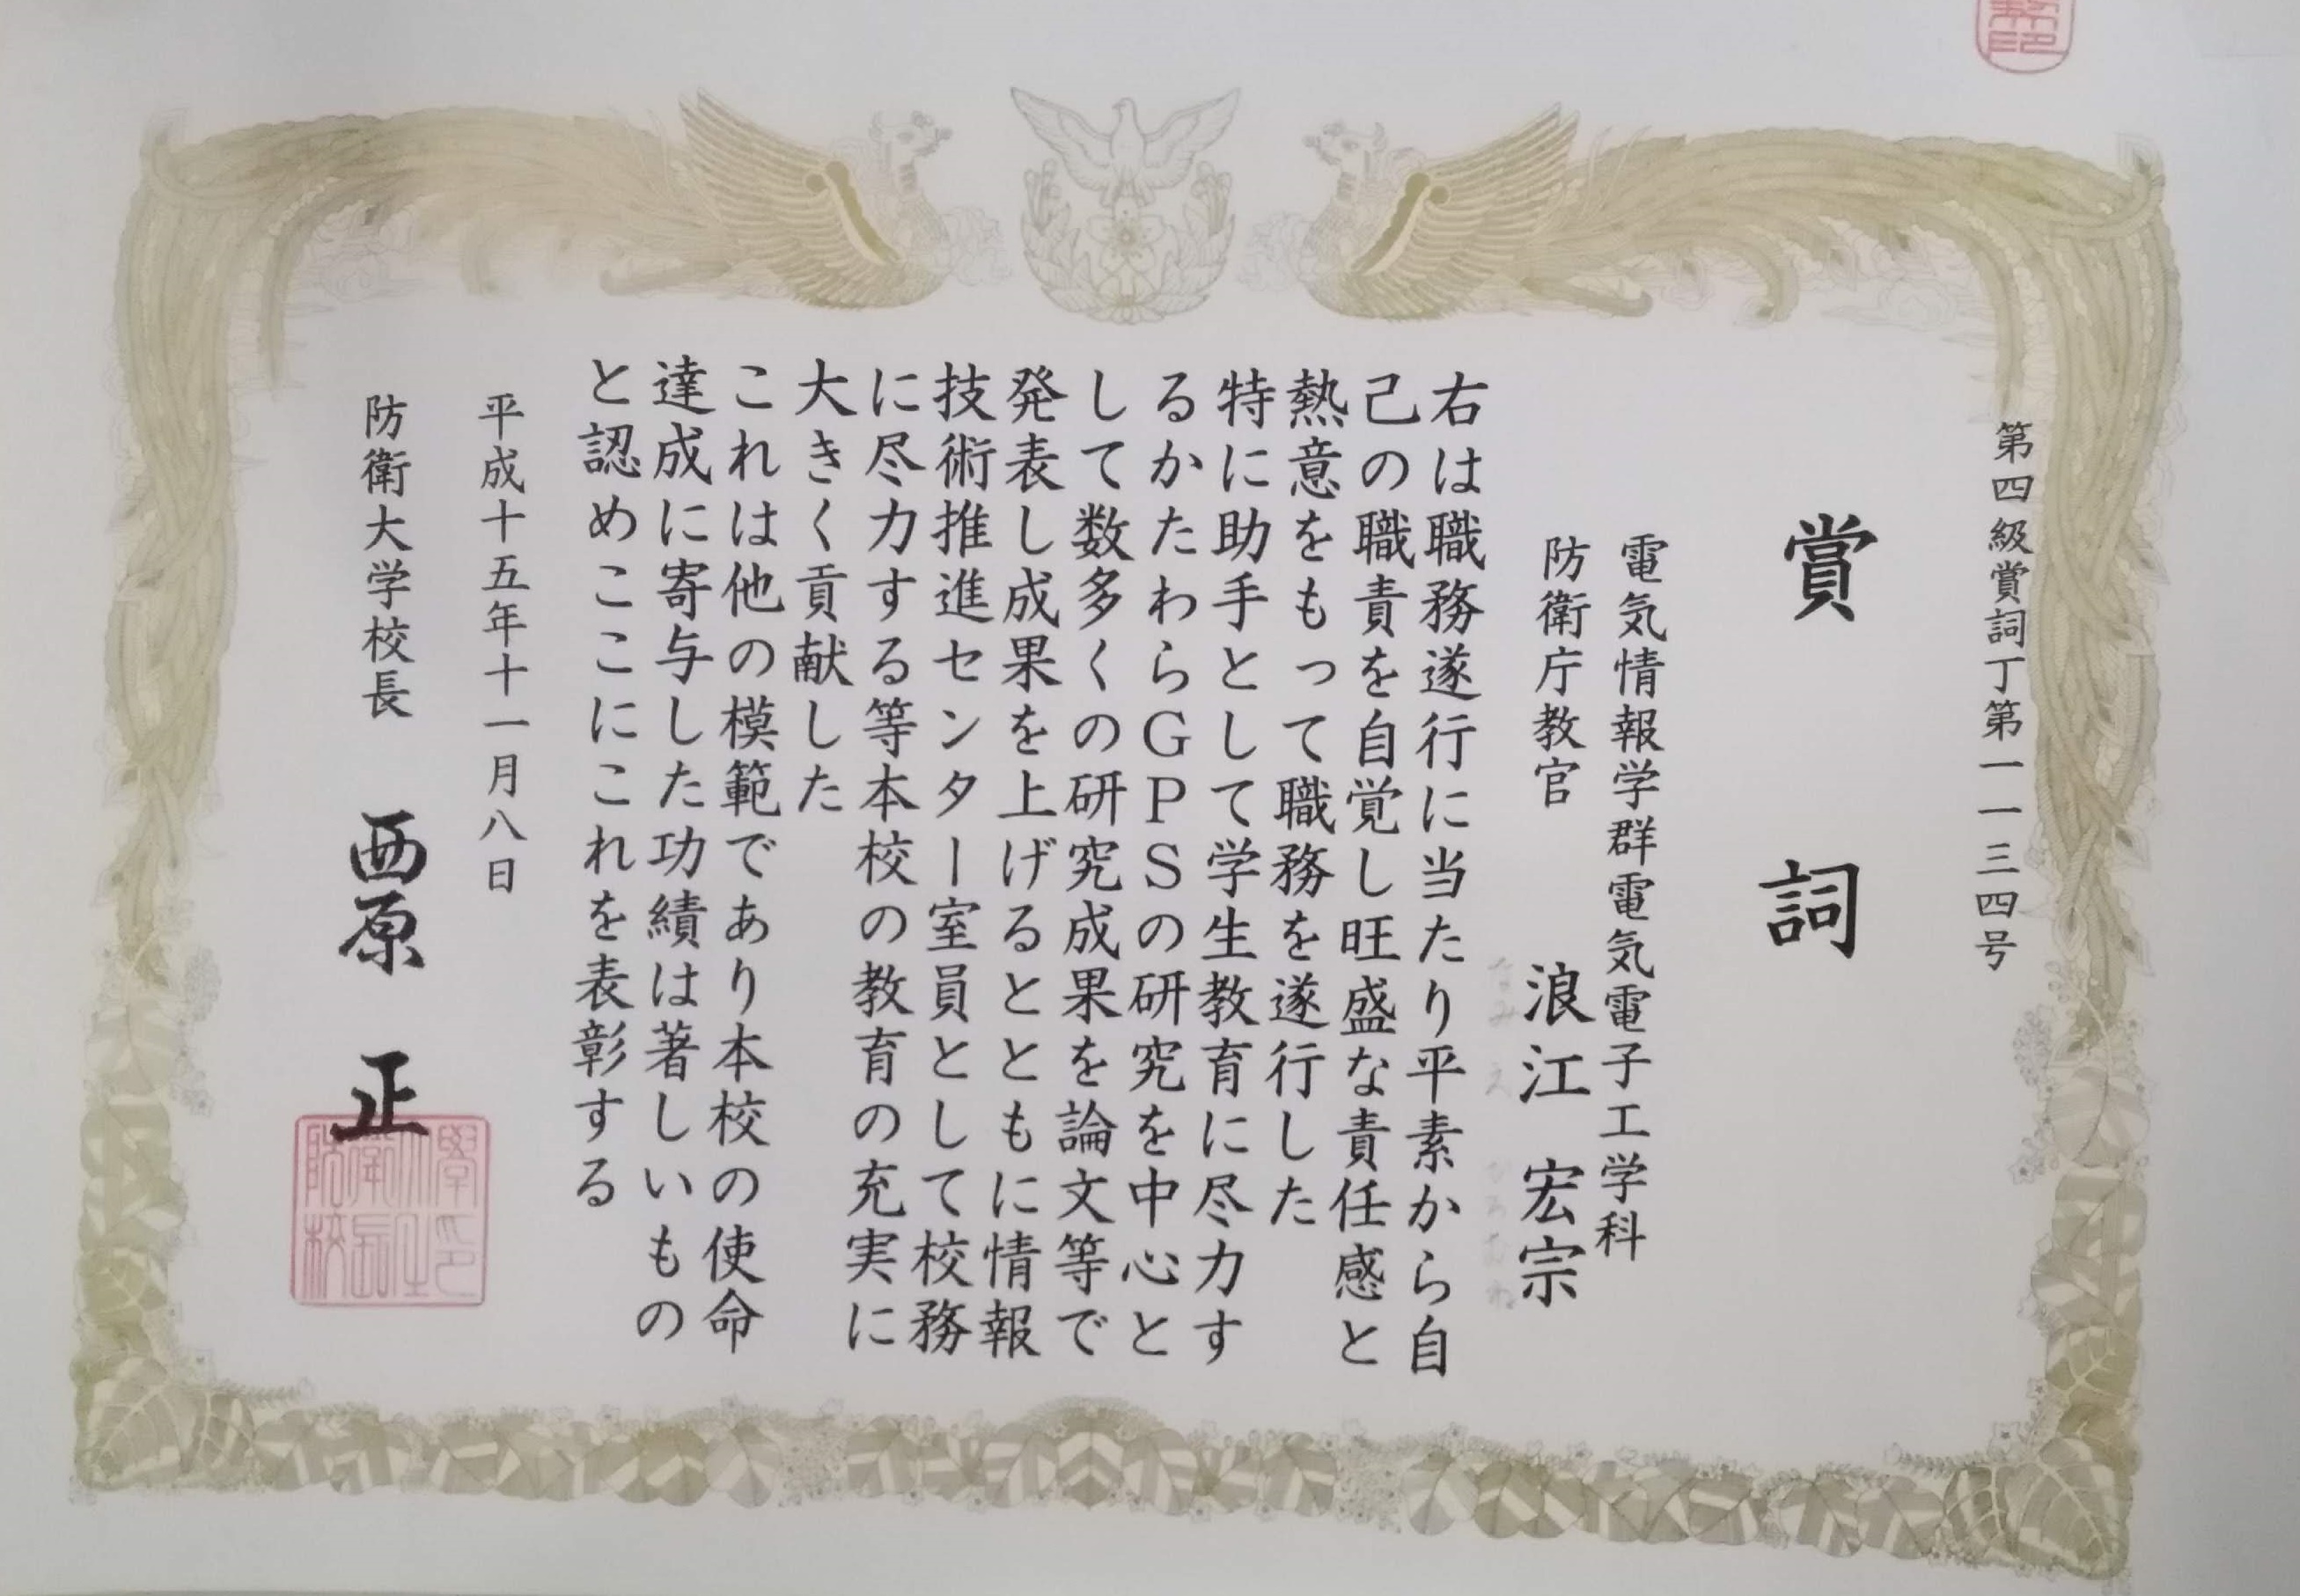 第四級賞詞丁第一一三四号
賞詞
電気情報学群電気電子工学科
防衛庁教官 浪江宏宗
なみえ ひろむね
右は職務遂行に当たり平素から自
己の職責を自覚し旺盛な責任感と
熱意をもって職務を遂行した
特に助手として学生教育に尽力す
るかたわらGPSの研究を中心と
して数多くの研究成果を論文等で
発表し成果を上げるとともに情報
技術推進センター室員として校務
に尽力する等本校の教育の充実に
大きく貢献した
これは他の模範であり本校の使命
達成に寄与した功績は著しいもの
と認めここにこれを表彰する
平成十五年十一月八日
防衛大学校長 西原正
防衛大學校長之印